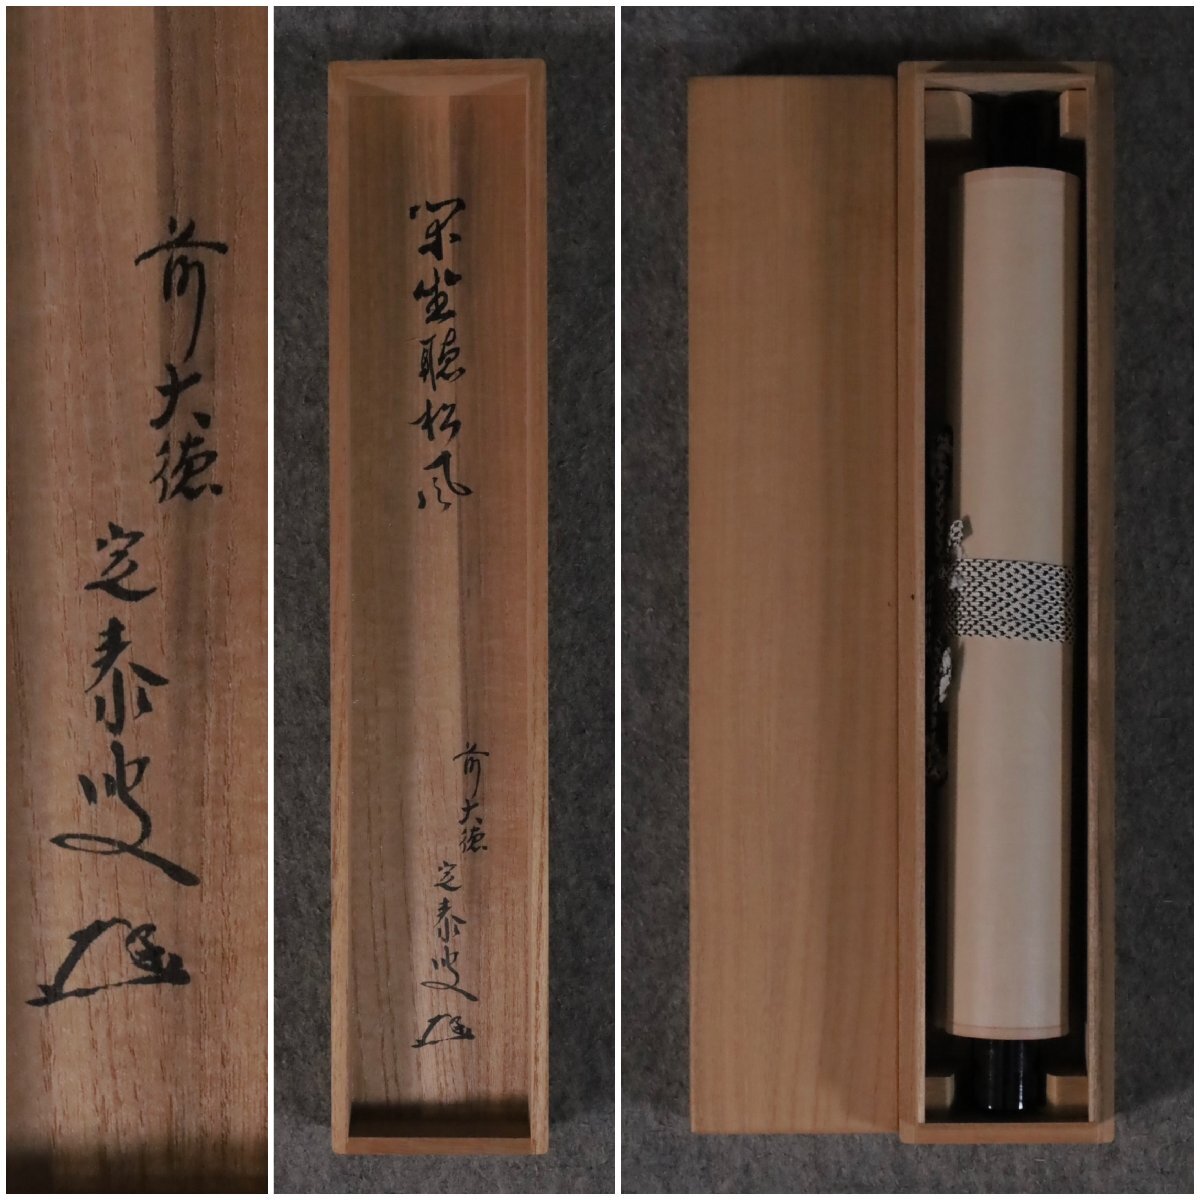 前大徳
定泰叟
閑坐聴松風
前大徳
定泰叟